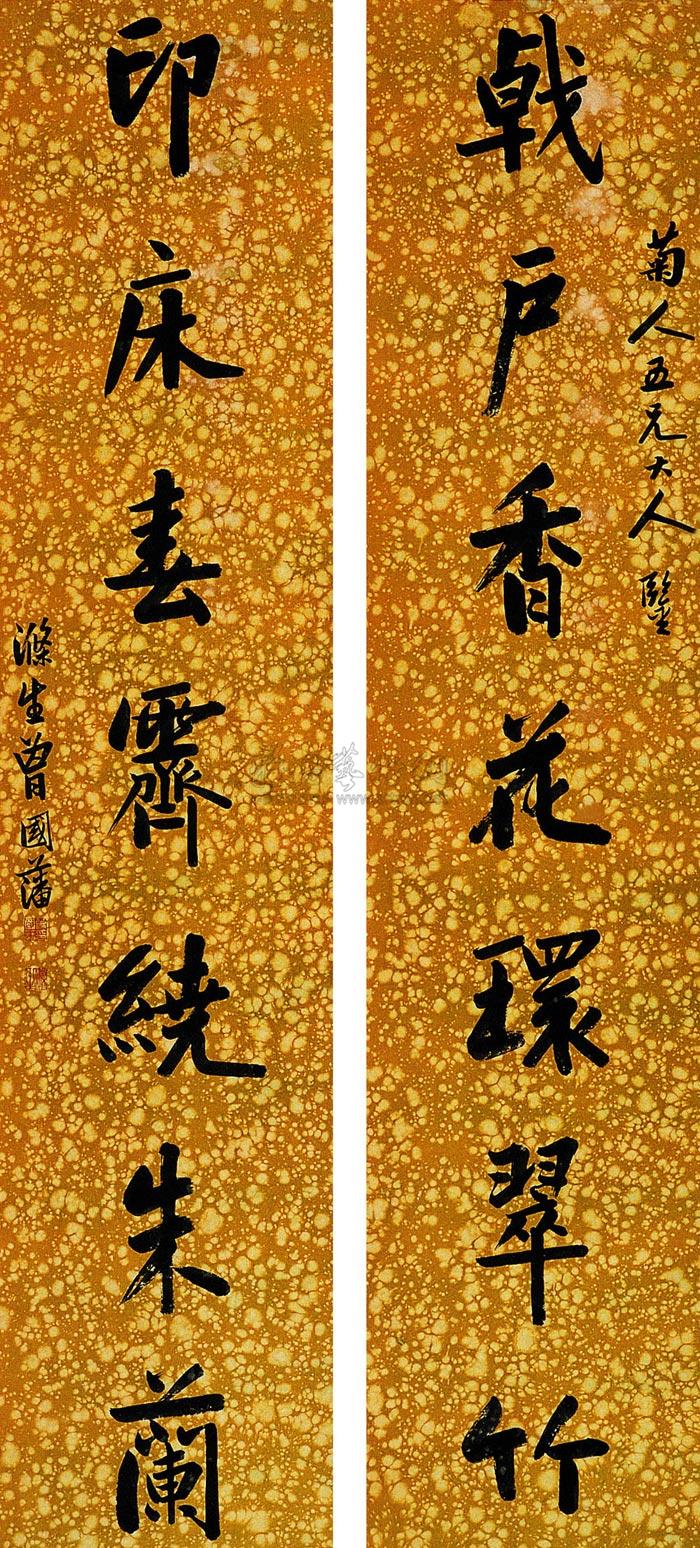 菊人五兄大人鑒
戟戶香花環翠竹
印床春霽繞朱蘭
滌生曾國藩